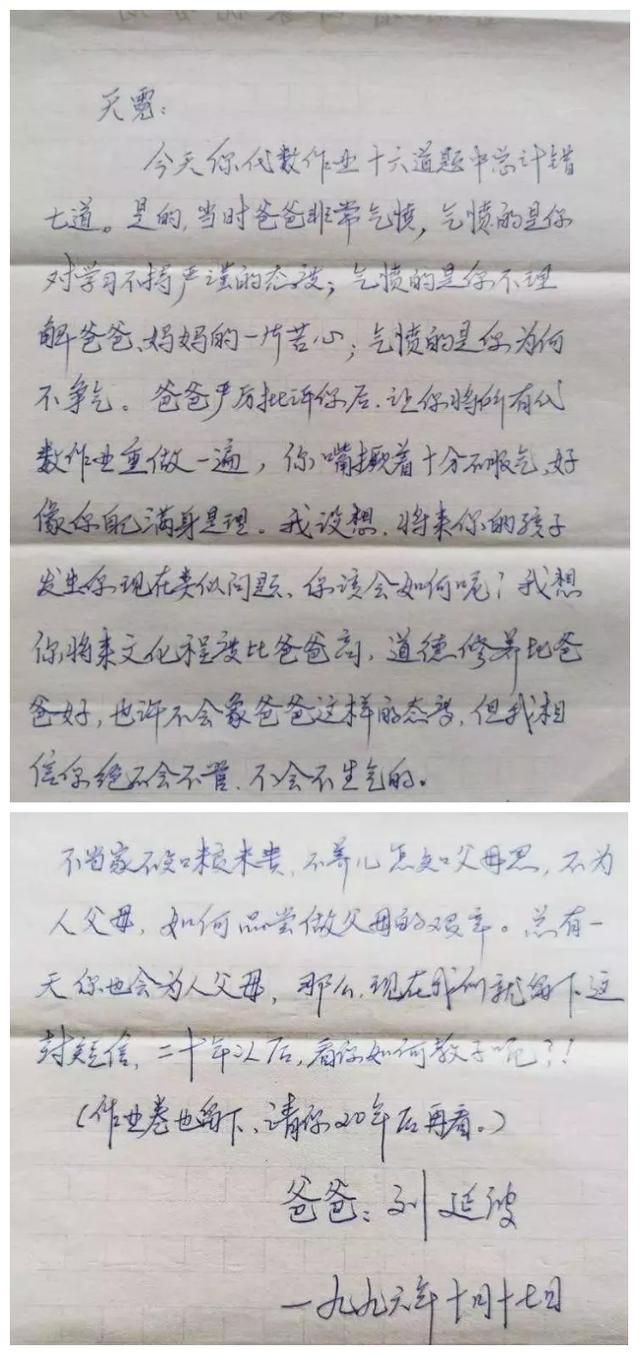 天霓:
今天你代数作业十六道题中总计错
七道。是的,当时爸爸非常气愤,气愤的是你
对学习不持严谨的态度;气愤的是你不理
解爸爸、妈妈的一片苦心;气愤的是你为何
不争气。爸爸严厉批评你后.让你将所有代
数作业重做一遍,你嘴撅着十分不服气,好
像你自己满身是理。我设想.将来你的孩子
发生你现在类似问题、你该会如何呢?我想
你将来文化程度比爸爸高,道德修养比爸
爸好,也许不会象爸爸这样的态度,但我相
信你绝不会不管.不会不生气的。
不当家不知柴米贵,不养儿怎知父母恩,不为
人父母,如何品尝做父母的艰辛。总有一
天你也会为人父母,那么,现在我们就留下这
封短信,二十年以后,看你如何教子呢?!
(作业卷也留下、请你20年后再看。)
爸爸:刘延波
一九九六年十月十七日